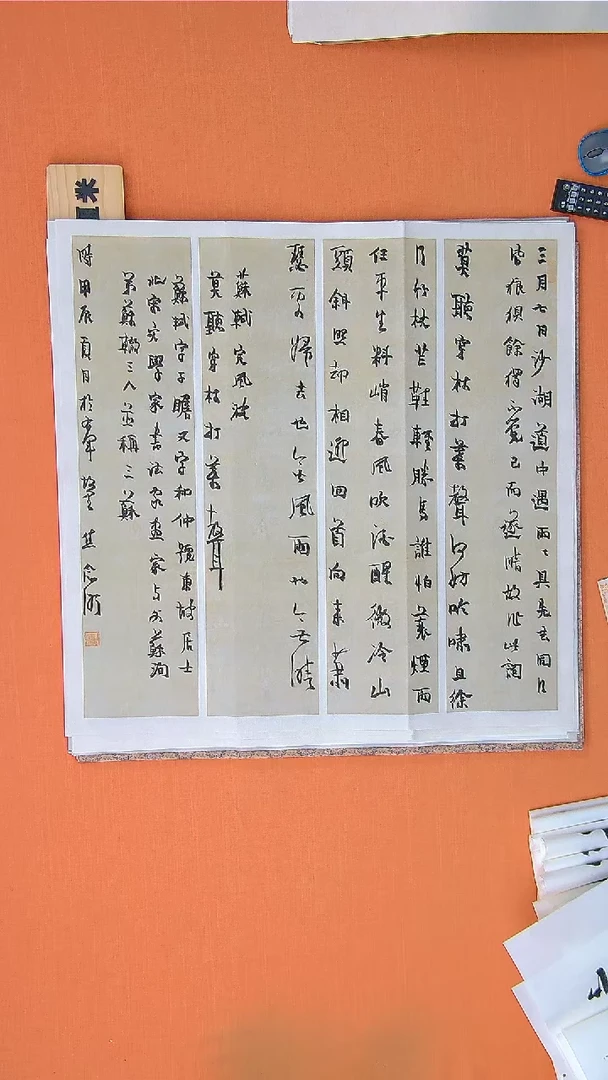 三月七日沙湖道中遇雨〻具先去同行
皆狼狽餘獨不覺已而遂晴故作此詞
莫聽穿林打葉聲何妨吟嘯且徐
行竹杖芒鞋輕勝馬誰怕蓑煙雨
任平生料峭春風吹酒醒微冷山
頭斜照却相迎回首向來蕭
瑟處歸去也無風雨也無晴
蘇軾定風波
莫聽穿林打葉聲
蘇軾字子瞻又字和仲號東坡居士
北宋文學家書法家畫家与父蘇洵
弟蘇轍三人並稱三蘇
時甲辰夏月於